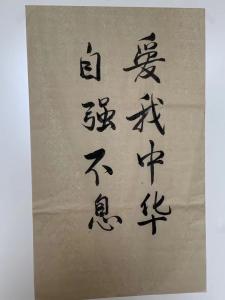 爱我中华
自强不息